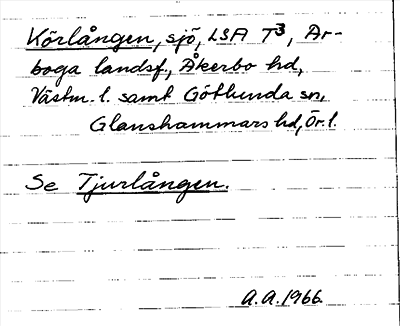 Körlången, sjö, LSA T3, Ar-
boga landsf., Åkerbo hd,
Västm. l. samt Götlunda sn,
Glanshammars hd, Ör. l.
Se Tjurlången.
A.A. 1966.